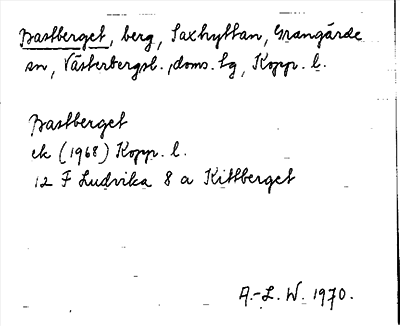 Bastberget, berg, Saxhyttan, Grangärde
sn, Västerbergsl., doms. tg, Kopp. l.
Bastberget
ek (1968) Kopp. l.
12 F Ludvika 8 a Kittberget
A.-L. W. 1970.